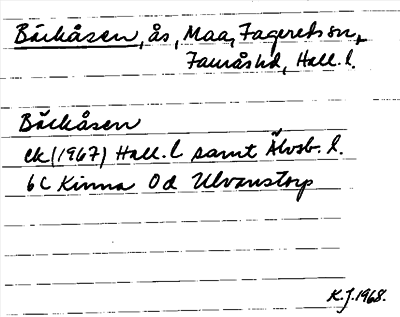 Bäckåsen, ås, Maa, Fagereds sn,
Faurås hd, Hall. l.
Bäckåsen
ek (1967) Hall. l samt Älvsb. l.
6C Kinna 0d Ulvanstorp
K.J. 1968.